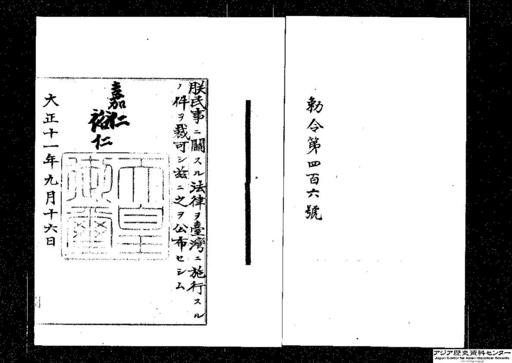 勅令第四百六號
朕民事ニ關スル法律ヲ臺灣ニ施行スル
ノ件ヲ裁可シ茲ニ之ヲ公布セシム
嘉仁
裕仁
天皇
御璽
大正十一年九月十六日
アジア歴史資料センター
Japan Center for Asian Historical Records